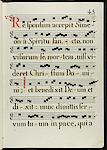 43
Responsum accepit Sime-
on a Spiritu sancto, non
visurum se mortem, nisi vi-
deret Christum Domi-
ni: et benedixit Deum et
dixit: nunc dimittis ser-
vum tuum in pace, quia